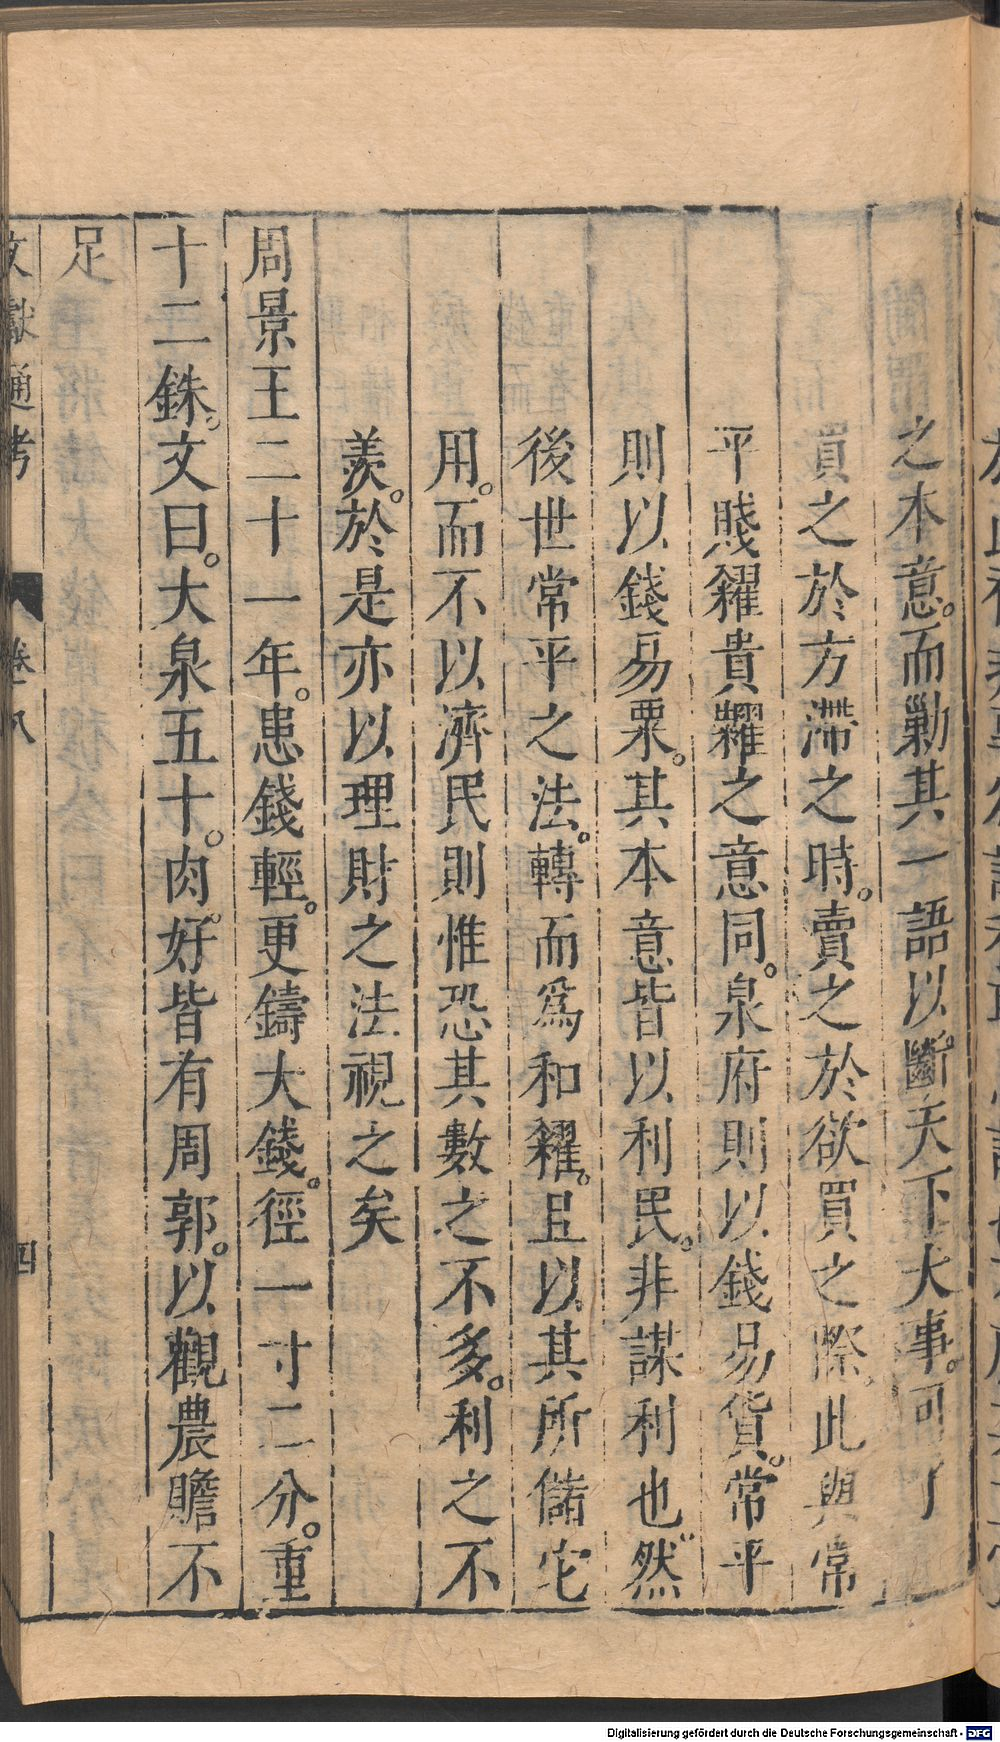 之本意。而勦其一語以斷天下大事。可
買之於方滯之時。賣之於欲買之際。此與常
平賤糴貴糶之意同。泉府則以錢易貨。常平
則以錢易粟。其本意皆以利民。非謀利也。然
後世常平之法。轉而爲和糴。且以其所儲它
用。而不以濟民則惟恐其數之不多。利之不
羨。於是亦以理財之法視之矣
周景王二十一年。患錢輕。更鑄大錢。徑一寸二分。重
十二銖。文曰。大泉五十。肉。好。皆有周郭。以觀農贍不
足
文獻通考 卷八 四
Digitalisierung gefördert durch die Deutsche Forschungsgemeinschaft - DFG